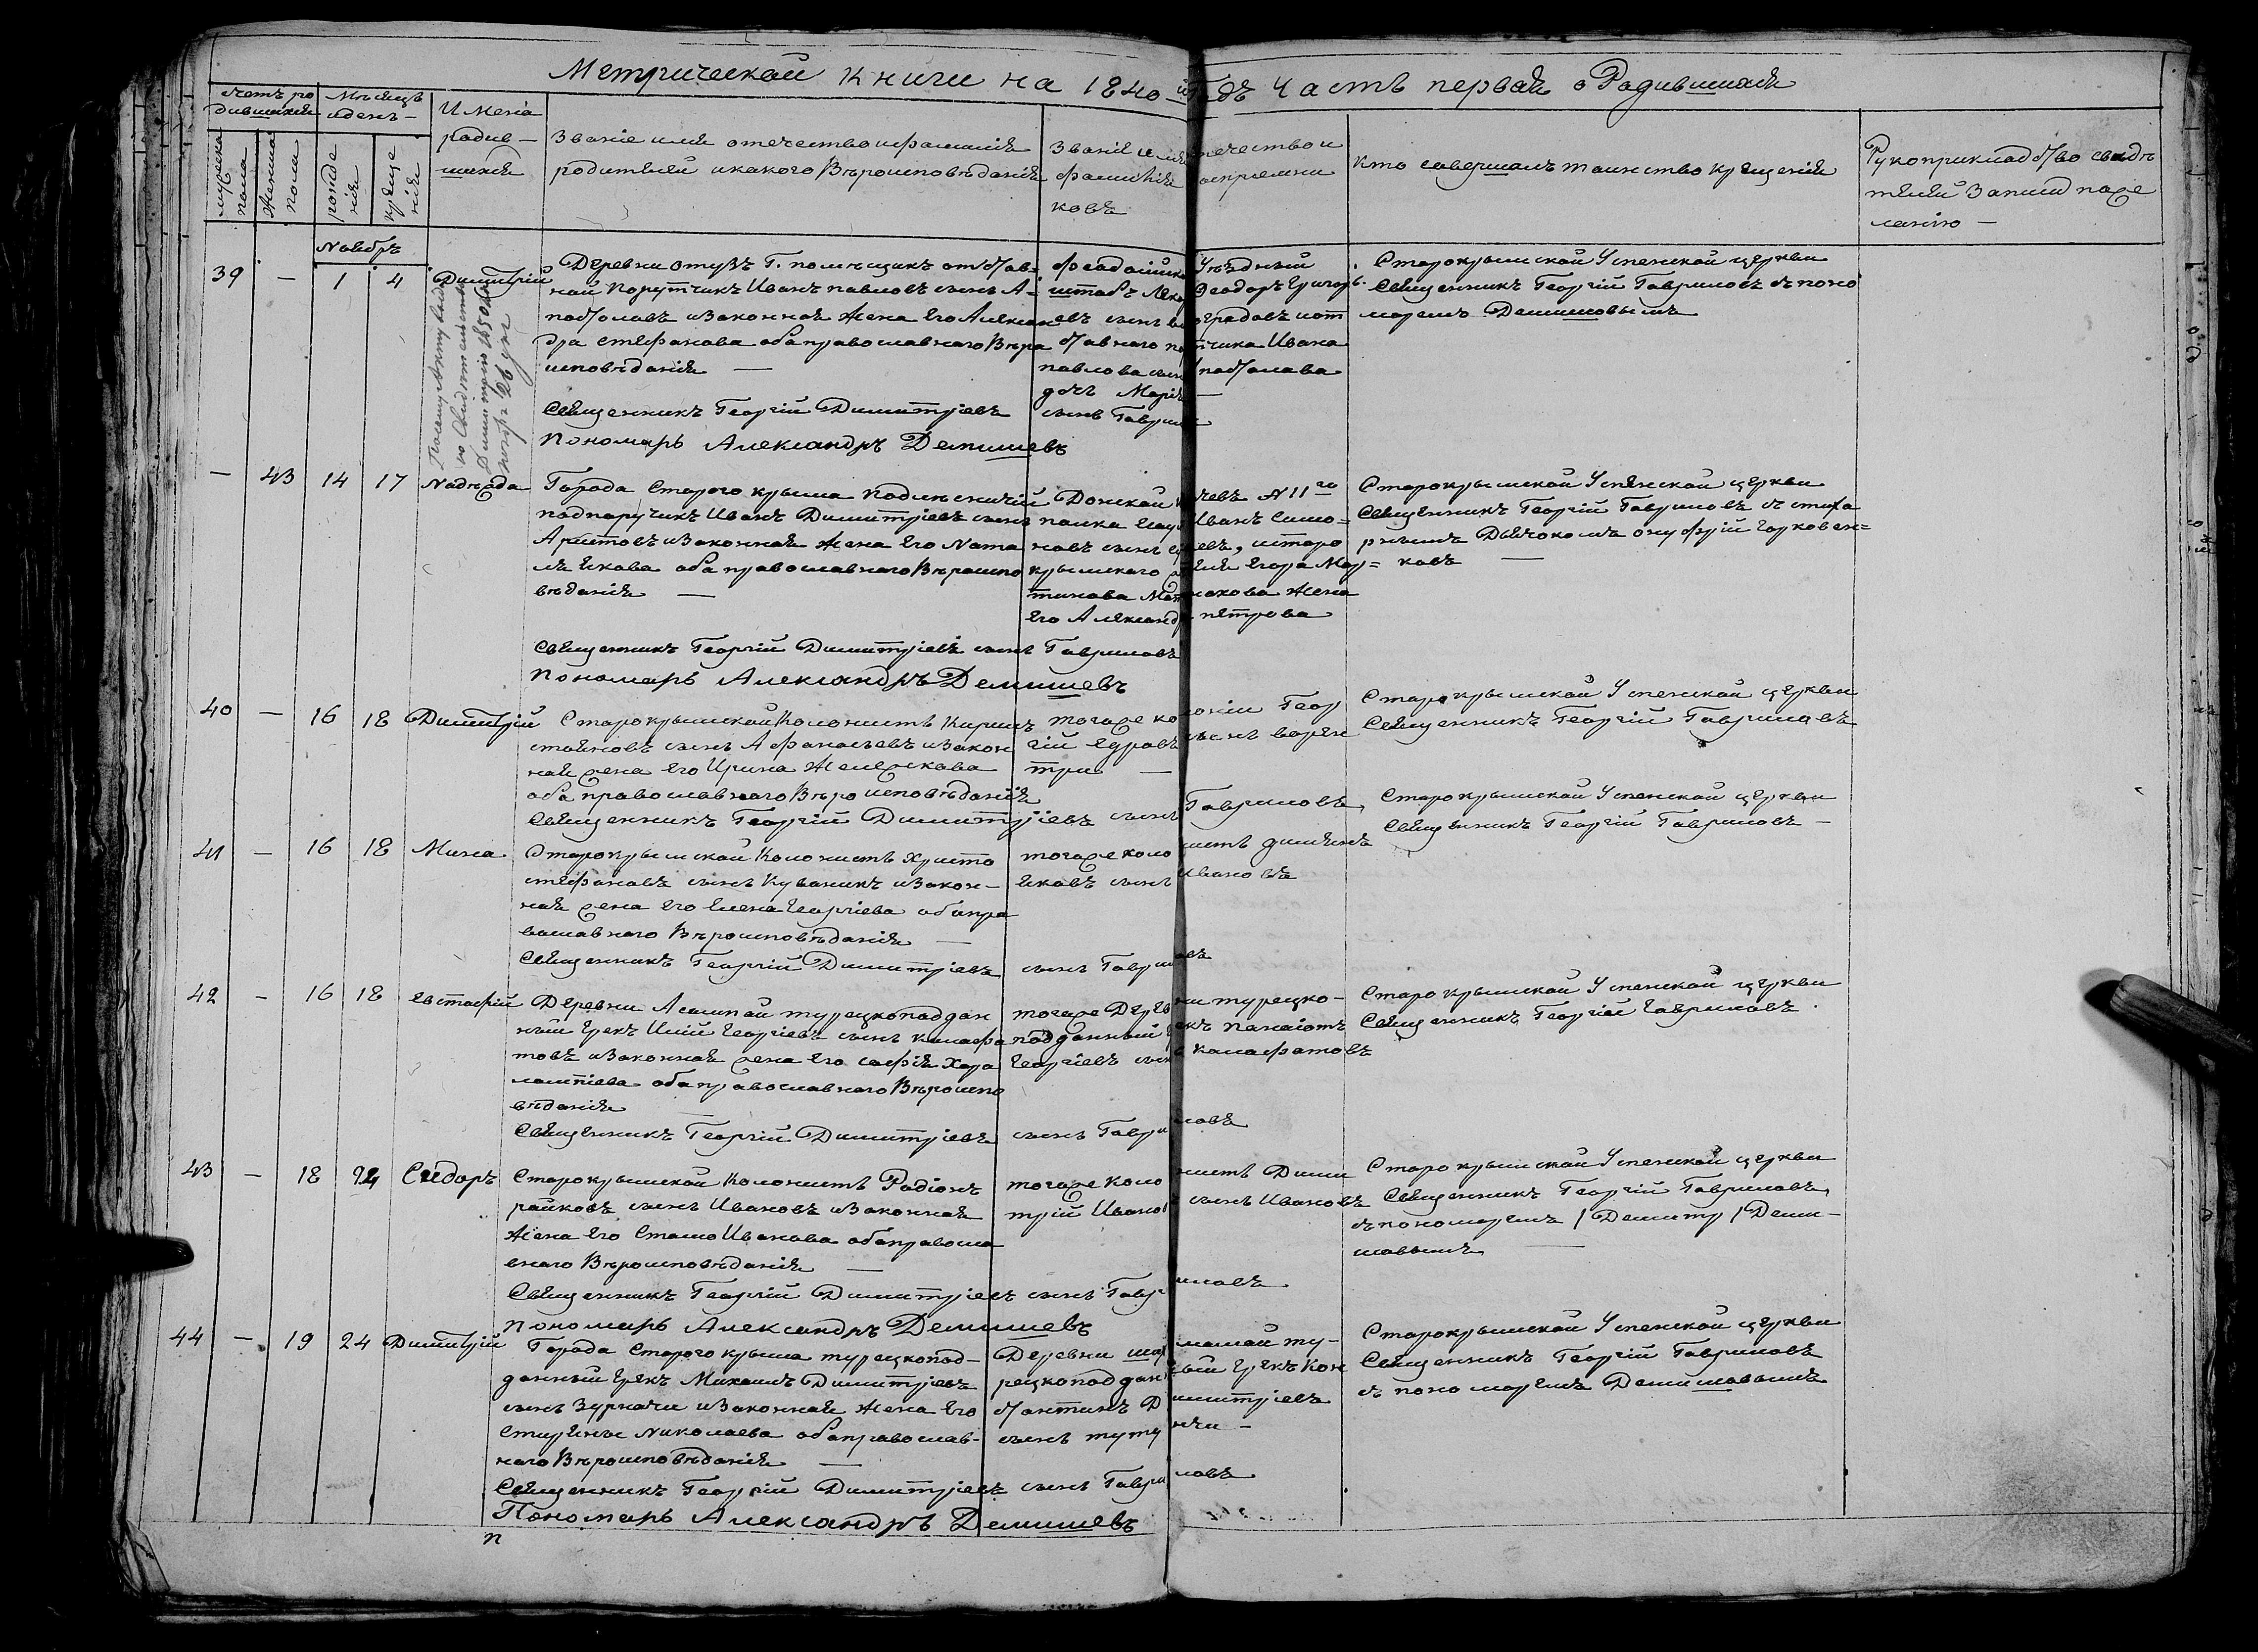 Метрической книги на 1840 й Годъ Часть первая о Родившихся
счетъ ро
дившихся
Мѣсяцъ
и день —
Имена
родив —
шихся
мужеска
пола
женска
пола
рожде
нія
креще
нія
Званіе имя отечество и фамилія
родителей и какого Вѣроисповѣданія
Званіе имя отечество и
фамилія воспріемни
ковъ
Кто совершалъ таинство крещенія
Рукоприкладство свидѣ
телей Записи по же
ланію —
Ноябрь
39 — 1 4 Димитрій
Деревни Отузъ Г. помѣщикъ отстав=
ной Порутчикъ Иванъ павловъ сынъ А=
постоловъ и Законная Жена Его Алексан
дра Стефанова оба православнаго Вѣро
исповѣданія —
Священникъ Георгій Димитріевъ сынъ Гаврил
Пономарь Александръ Демишевъ
феодосійск Уѣздный
штабъ Лека Феодоръ Григорь
евъ сынъ
ставнаго
Ивана
павлова сына постолава
дочь Марія —
Старокрымской Успенской церкви
Священникъ Георгій Гавриловъ съ поно
маремъ Демишовымъ
Димитрію 1850
26 дня
— 43 14 17 Надежда
Города Старого крыма
подпаручикъ Иванъ Димитріевъ сынъ
Аристовъ и Законная Жена Его Ната
оба православнаго Вѣроиспо
вѣданія —
Донской № 11 го
полка Иванъ Симо=
новъ сынъ
крымскаго Егора Мар=
тинова Жена
Его Александр петрова
Священникъ Георгій Димитріевъ сынъ Гавриловъ
Пономарь Александръ Демишевъ
Старокрымской Успенской церкви
Священникъ Георгій Гавриловъ съ стиха
рнымъ Дьячкомъ Онуфрій Горковен=
ковъ —
40 — 16 18 Димитрій
Старокрымской Колонистъ Кирилъ
стояновъ сынъ Афанасьевъ и Закон
ная жена Его Ирина Желязкова
оба православнаго Вѣроисповѣданія
Священникъ Георгій Димитріевъ сынъ Гавриловъ
тогоже колоніи Геор
гій сынъ
Старокрымской Успенской церкви
Священникъ Георгій Гавриловъ
41 — 16 18 Мина
Старокрымской Колонистъ Христо
стефановъ сынъ и Закон—
ная жена Его Елена Георгіева оба пра
вославнаго Вѣроисповѣданія —
Священникъ Георгій Димитріевъ сынъ Гавриловъ
тогоже колонистъ
сынъ Ивановъ
Старокрымской Успенской церкви
Священникъ Георгій Гавриловъ —
42 — 16 18 Евстафій
Деревни турецкоподдан
ный Грекъ Илій Георгіевъ сынъ Калафа
товъ и Законная жена Его софія Хара
лампіева оба православнаго Вѣроиспо
вѣданія
Священникъ Георгій Димитріевъ сынъ Гавриловъ
тогоже Деревни турецко—
подданный Грекъ Панаіотъ
Георгіевъ сынъ Калафатовъ
Старокрымской Успенской церкви
Священникъ Георгій Гавриловъ.
43 — 18 24 Сидоръ
Старокрымской Колонистъ Радіонъ
райковъ сынъ Ивановъ и Законная
Жена Его Стамо Иванова оба правосла
внаго Вѣроисповѣданія —
Священникъ Георгій Димитріевъ сынъ Гавриловъ
Пономарь Александръ Демишевъ
тогоже Колонистъ Дими
трій Иванов сынъ Ивановъ
Старокрымской Успенской церкви
Священникъ Георгій Гавриловъ
съ пономаремъ Деми—
шовымъ —
44 — 19 24 Димитрій
Города Старого крыма турецкопод—
данный Грекъ Михаилъ Димитріевъ
сынъ Зурначи и Законная Жена Его
Николаева оба православ—
наго Вѣроисповѣданія —
Священникъ Георгій Димитріевъ сынъ Гавриловъ
Пономарь Александръ Демишевъ
Деревни ту—
рецкоподданный Грекъ Кон
стантинъ Димитріевъ
сынъ —
Старокрымской Успенской церкви
Священникъ Георгій Гавриловъ
съ пономаремъ Демишовымъ